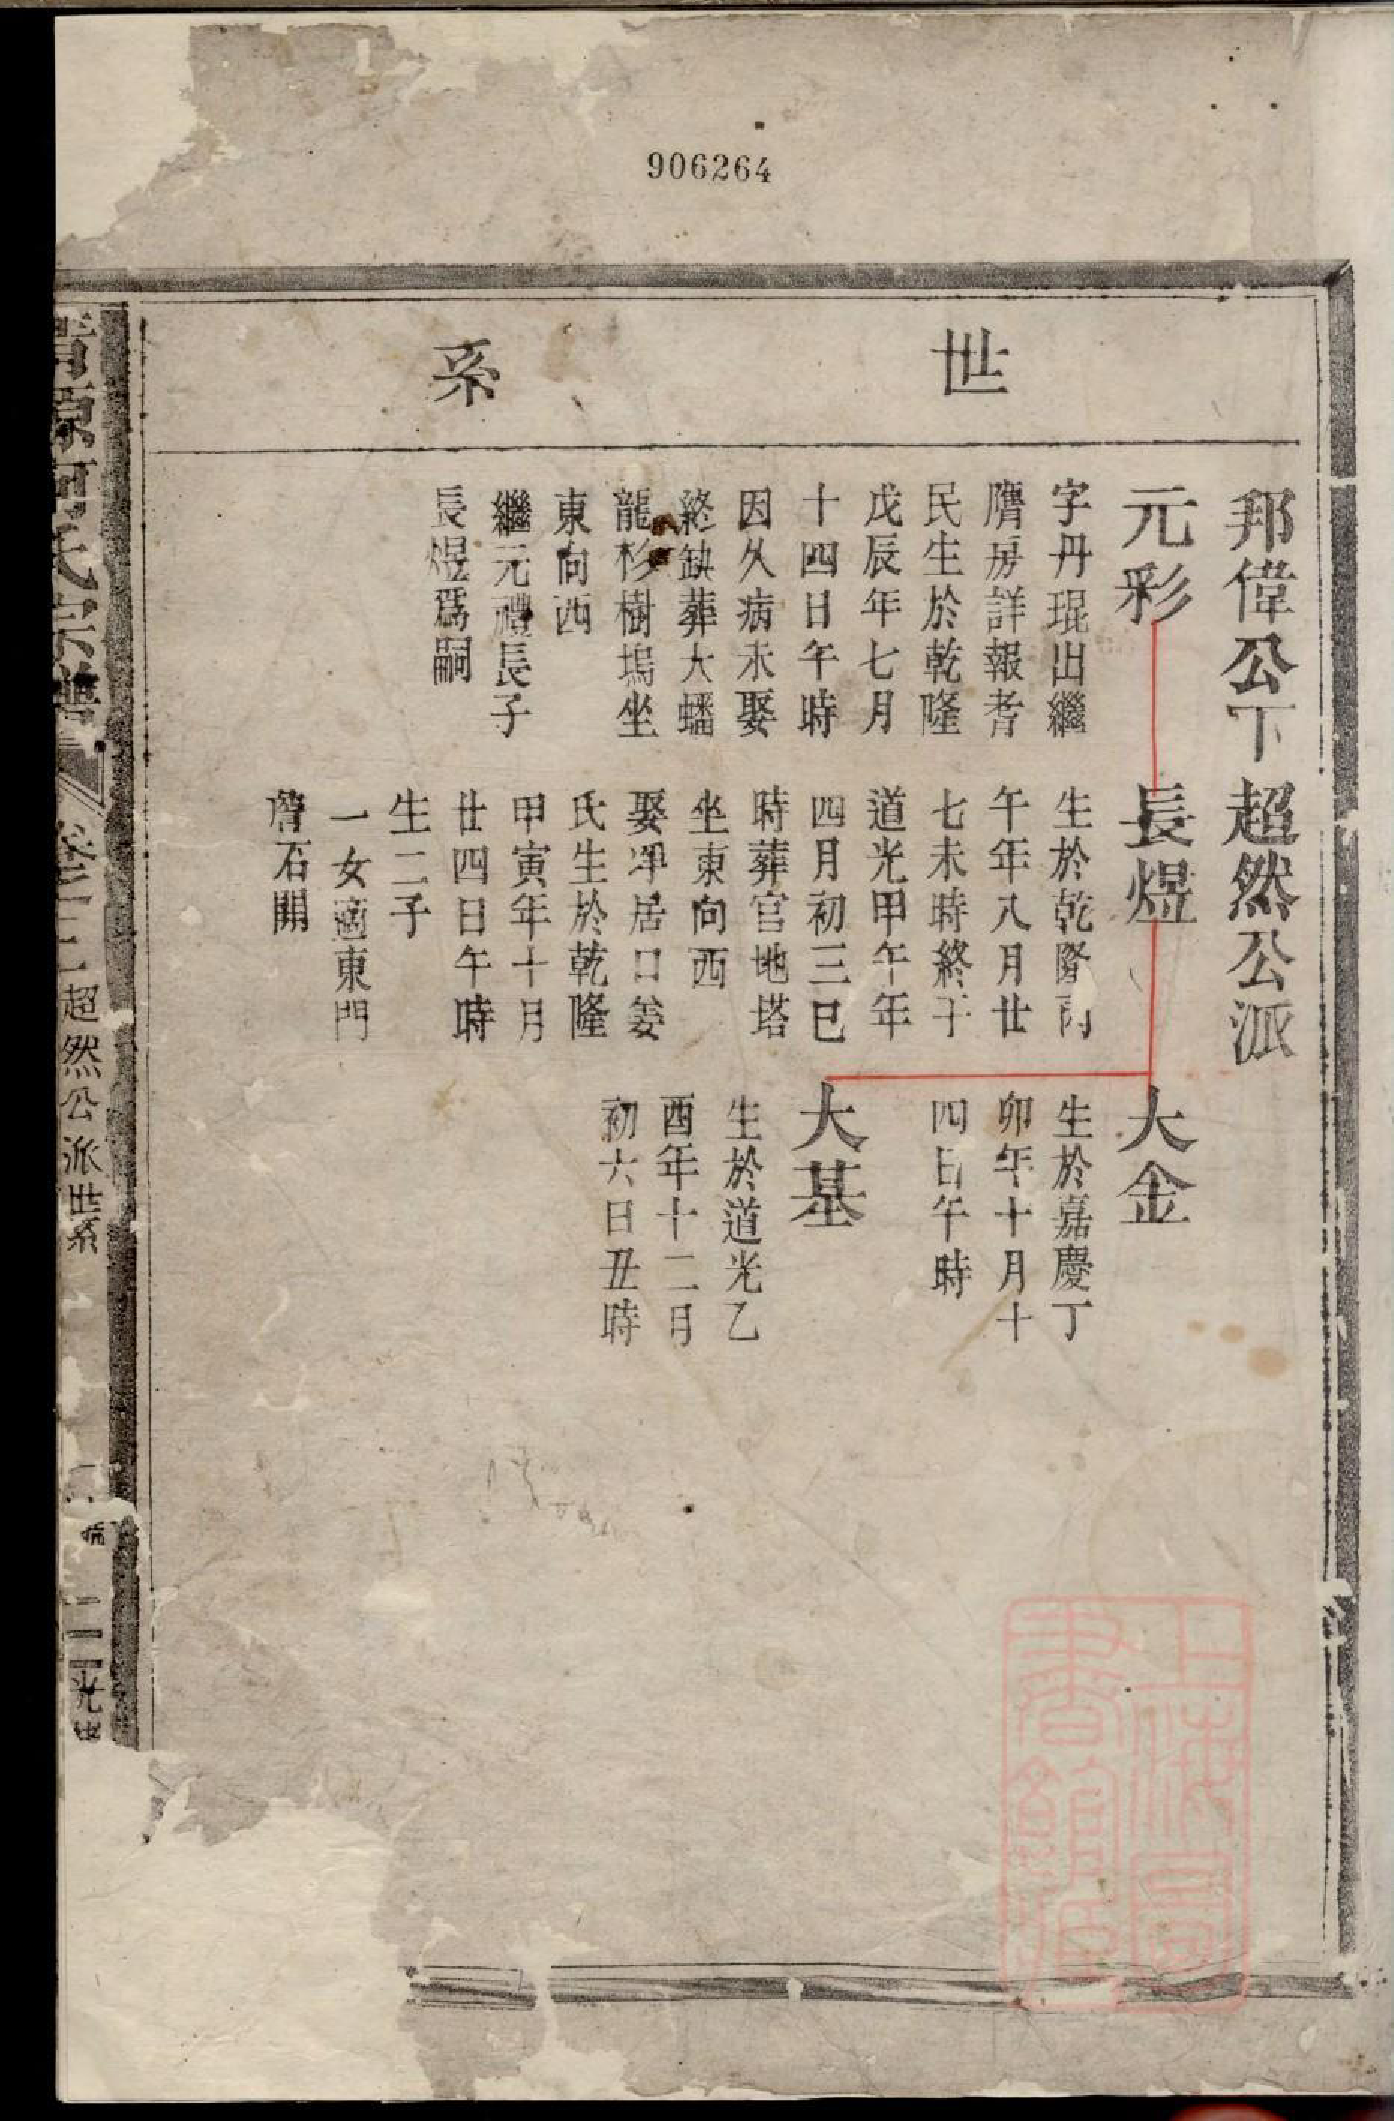 906264
世系
邦偉公下超然公派
元彩
字丹琨出繼
膺房詳報耆
民生於乾隆
戊辰年七月
十四日午時
因久病未娶
終缺葬大蟠
龍杉樹塢坐
東向西
繼元禮長子
長煜爲嗣
長煜
生於乾隆丙
午年八月廿
七未時終于
道光甲午年
四月初三巳
時葬官地塔
坐東向西
娶淨居口姜
氏生於乾隆
甲寅年十月
廿四日午時
生二子
一女適東門
詹石開
大金
生於嘉慶丁
卯年十月十
四日午時
大基
生於道光乙
酉年十二月
初六日丑時
源何氏宗譜
卷三
超然公派世系
上海圖書館藏